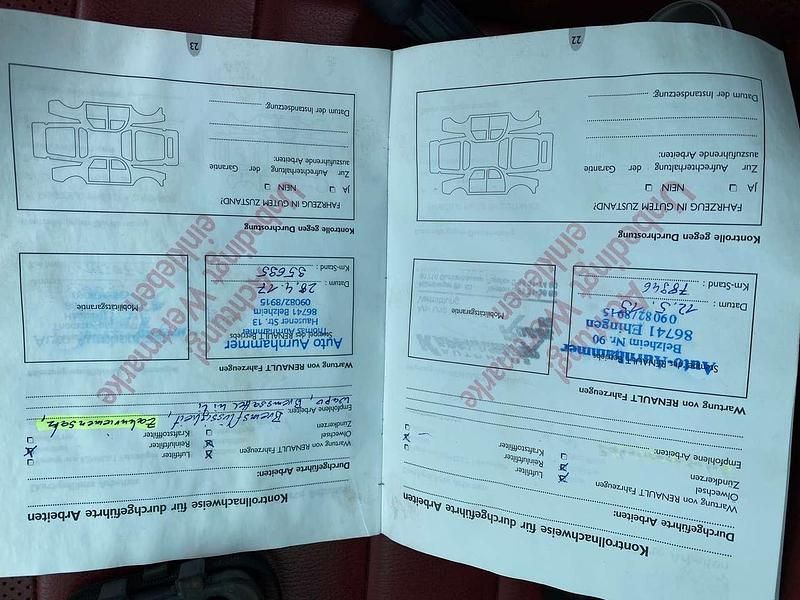 22
Kontrollnachweise für durchgeführte Arbeiten
Durchgeführte Arbeiten:
Wartung von RENAULT Fahrzeugen
Ölwechsel
Zündkerzen
Luftfilter
Reinluftfilter
Kraftstofffilter
Empfohlene Arbeiten:
Wartung von RENAULT Fahrzeugen
Stempel des RENAULT Betriebs
Auto Aurnhammer
Belzheim Nr. 90
86741 Ehingen
09082/8915
Datum : 12.3.15
Km-Stand : 78946
Mobilitätsgarantie
Achtung!
Unbedingt Wertmarke
einkleben
Kontrolle gegen Durchrostung
FAHRZEUG IN GUTEM ZUSTAND?
JA NEIN
Zur Aufrechterhaltung der Garantie
auszuführende Arbeiten:
Datum der Instandsetzung:
23
Kontrollnachweise für durchgeführte Arbeiten
Durchgeführte Arbeiten:
Wartung von RENAULT Fahrzeugen
Ölwechsel
Zündkerzen
Luftfilter
Reinluftfilter
Kraftstofffilter
Empfohlene Arbeiten: Bremsflüssigkeit, Zahnriemensatz,
Wapu Bremssattel hi li
Wartung von RENAULT Fahrzeugen
Stempel des RENAULT Betriebs
Auto Aurnhammer
Thomas Aurnhammer
Hausener Str. 13
86741 Belzheim
09082/8915
Datum : 28.4.17
Km-Stand : 95695
Mobilitätsgarantie
Achtung!
Unbedingt Wertmarke
einkleben
Kontrolle gegen Durchrostung
FAHRZEUG IN GUTEM ZUSTAND?
JA NEIN
Zur Aufrechterhaltung der Garantie
auszuführende Arbeiten:
Datum der Instandsetzung: